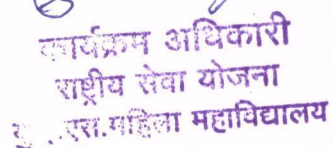 कार्यक्रम अधिकारी
राष्ट्रीय सेवा योजना
महिला महाविद्यालय